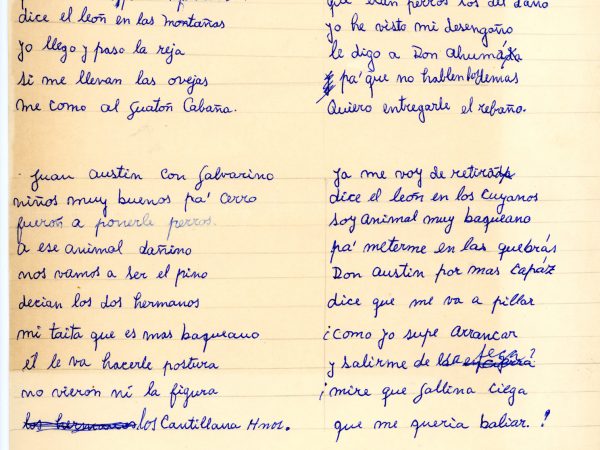 dice el león en las montañas
yo llego y paso la reja
si me llevan las ovejas
me como al Guatón Cabaña.
que eran perros los del daño
yo he visto mi desengaño
le digo a Don Ahumada
pa' que no hablen los demas
Quiero entregarle el rebaño.
Juan Austin con Galvarino
niños muy buenos pa' cerro
fueron a ponerle perros.
a ese animal dañino
nos vamos a ser el pino
decian los dos hermanos
mi taita que es mas baqueano
él le va hacerle postura
no vieron ni la figura
los hermanos los Cantillana Hnos.
Ya me voy de retirada
dice el león en los Cuyanos
soy animal muy baqueano
pa' meterme en las quebrás
Don Austin por mas capáz
dice que me va a pillar
¡Como yo supe arrancar
y salirme de
¡mire que gallina ciega
que me queria baliar.!